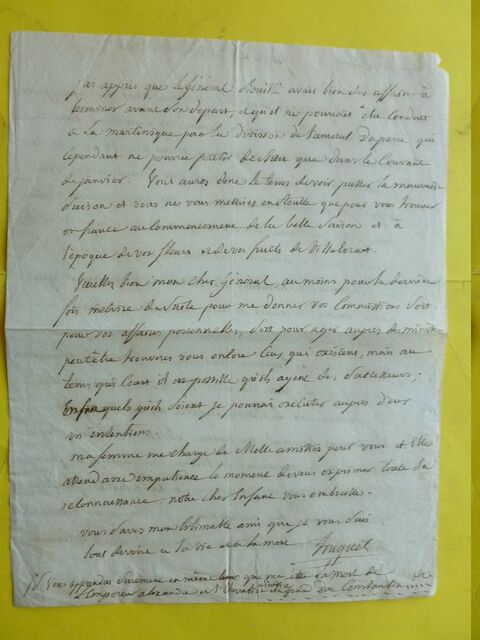 j'ai appris que le Général avait bien des affaires à
terminer avant son départ, et qu'il ne pourrait être conduit
à la martinique par la division de l'amiral Duperé qui
cependant ne pourra partir de que dans le Courant
de janvier. Vous aurez donc le tems de voir passer la mauvaise
saison et vous ne vous mettrez en Route que pour vous trouver
en france au Commencement de la belle Saison et à
l'époque de vos fleurs et de vos fruits de
Veuillez bien mon cher général au moins pour la dernière
fois de suite pour me donner vos Commissions soit
pour vos affaires personnelles, soit pour agir auprès des ministres
peut être trouverez vous encore ceux qui existent, mais au
tems qui Court il est possible qu'ils ayent des successeurs;
Enfin quels qu'ils soient je pourrai exécuter auprès d'eux
vos intentions.
ma femme me charge de Mille amitiés pour vous et Elle
attend avec impatience le moment de vous exprimer toute Sa
reconnaissance. notre cher Enfant vous embrasse.
vous savez mon Estimable ami que je vous Suis
tout dévoué à la Vie et à la mort
Truguet
Vous apprendrez Surement en même tems que ma lettre la mort de
l'Empereur alexandre et l' du Constantin